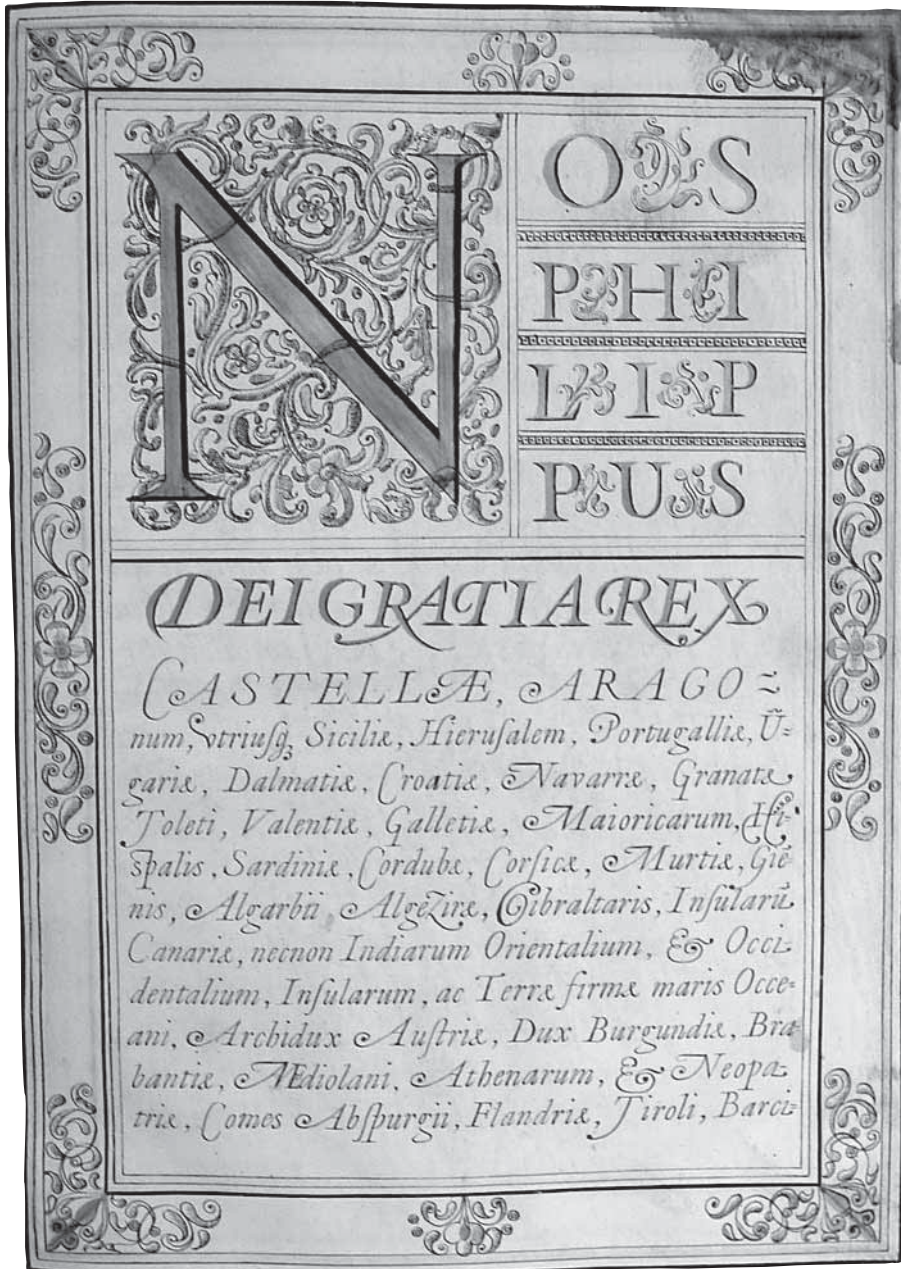 NOS
PHI
LIP
PUS
DEI GRATIA REX
CASTELLÆ, ARAGO=
num, vtriusq₃ Siciliæ, Hieruſalem, Portugalliæ, Ũ=
gariæ, Dalmatiæ, Croatiæ, Navarræ, Granatæ,
Toleti, Valentiæ, Galletiæ, Maioricarum, Hi-
spalis, Sardiniæ, Cordubæ, Corſicæ, Murtiæ, Giē-
nis, Algarbii, Algēziræ, Gibraltaris, Inſularū
Canariæ, necnon Indiarum Orientalium, & Occi=
dentalium, Inſularum, ac Terræ firmæ maris Occe=
ani, Archidux Auſtriæ, Dux Burgundiæ, Bra-
bantiæ, Mediolani, Athenarum, & Neopa=
triæ, Comes Abſpurgii, Flandriæ, Tiroli, Barci=